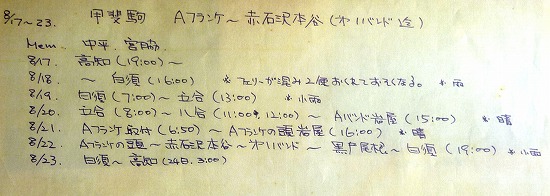 8/17~23. 甲斐駒 Aフランケ~赤石沢本谷(オ1バンド迄)
Mem. 中平. 宮脇
8/17. 高知(19:00)~
8/18. ~白須(16:00) * フェリーが混み2便おくれておそくなる。 * 雨
8/19. 白須(7:00)~立合(13:00) * 小雨
8/20. 立合(8:00)~八合(11:00, 12:00)~Aバンド岩屋(15:00) * 晴
8/21. Aフランケ取付(6:50)~Aフランケの頭岩屋(16:00) * 晴
8/22. Aフランケの頭~赤石沢本谷~オ1バンド~黒戸尾根~白須(19:00) * 小雨
8/23. 白須~高知(24日. 3:00)